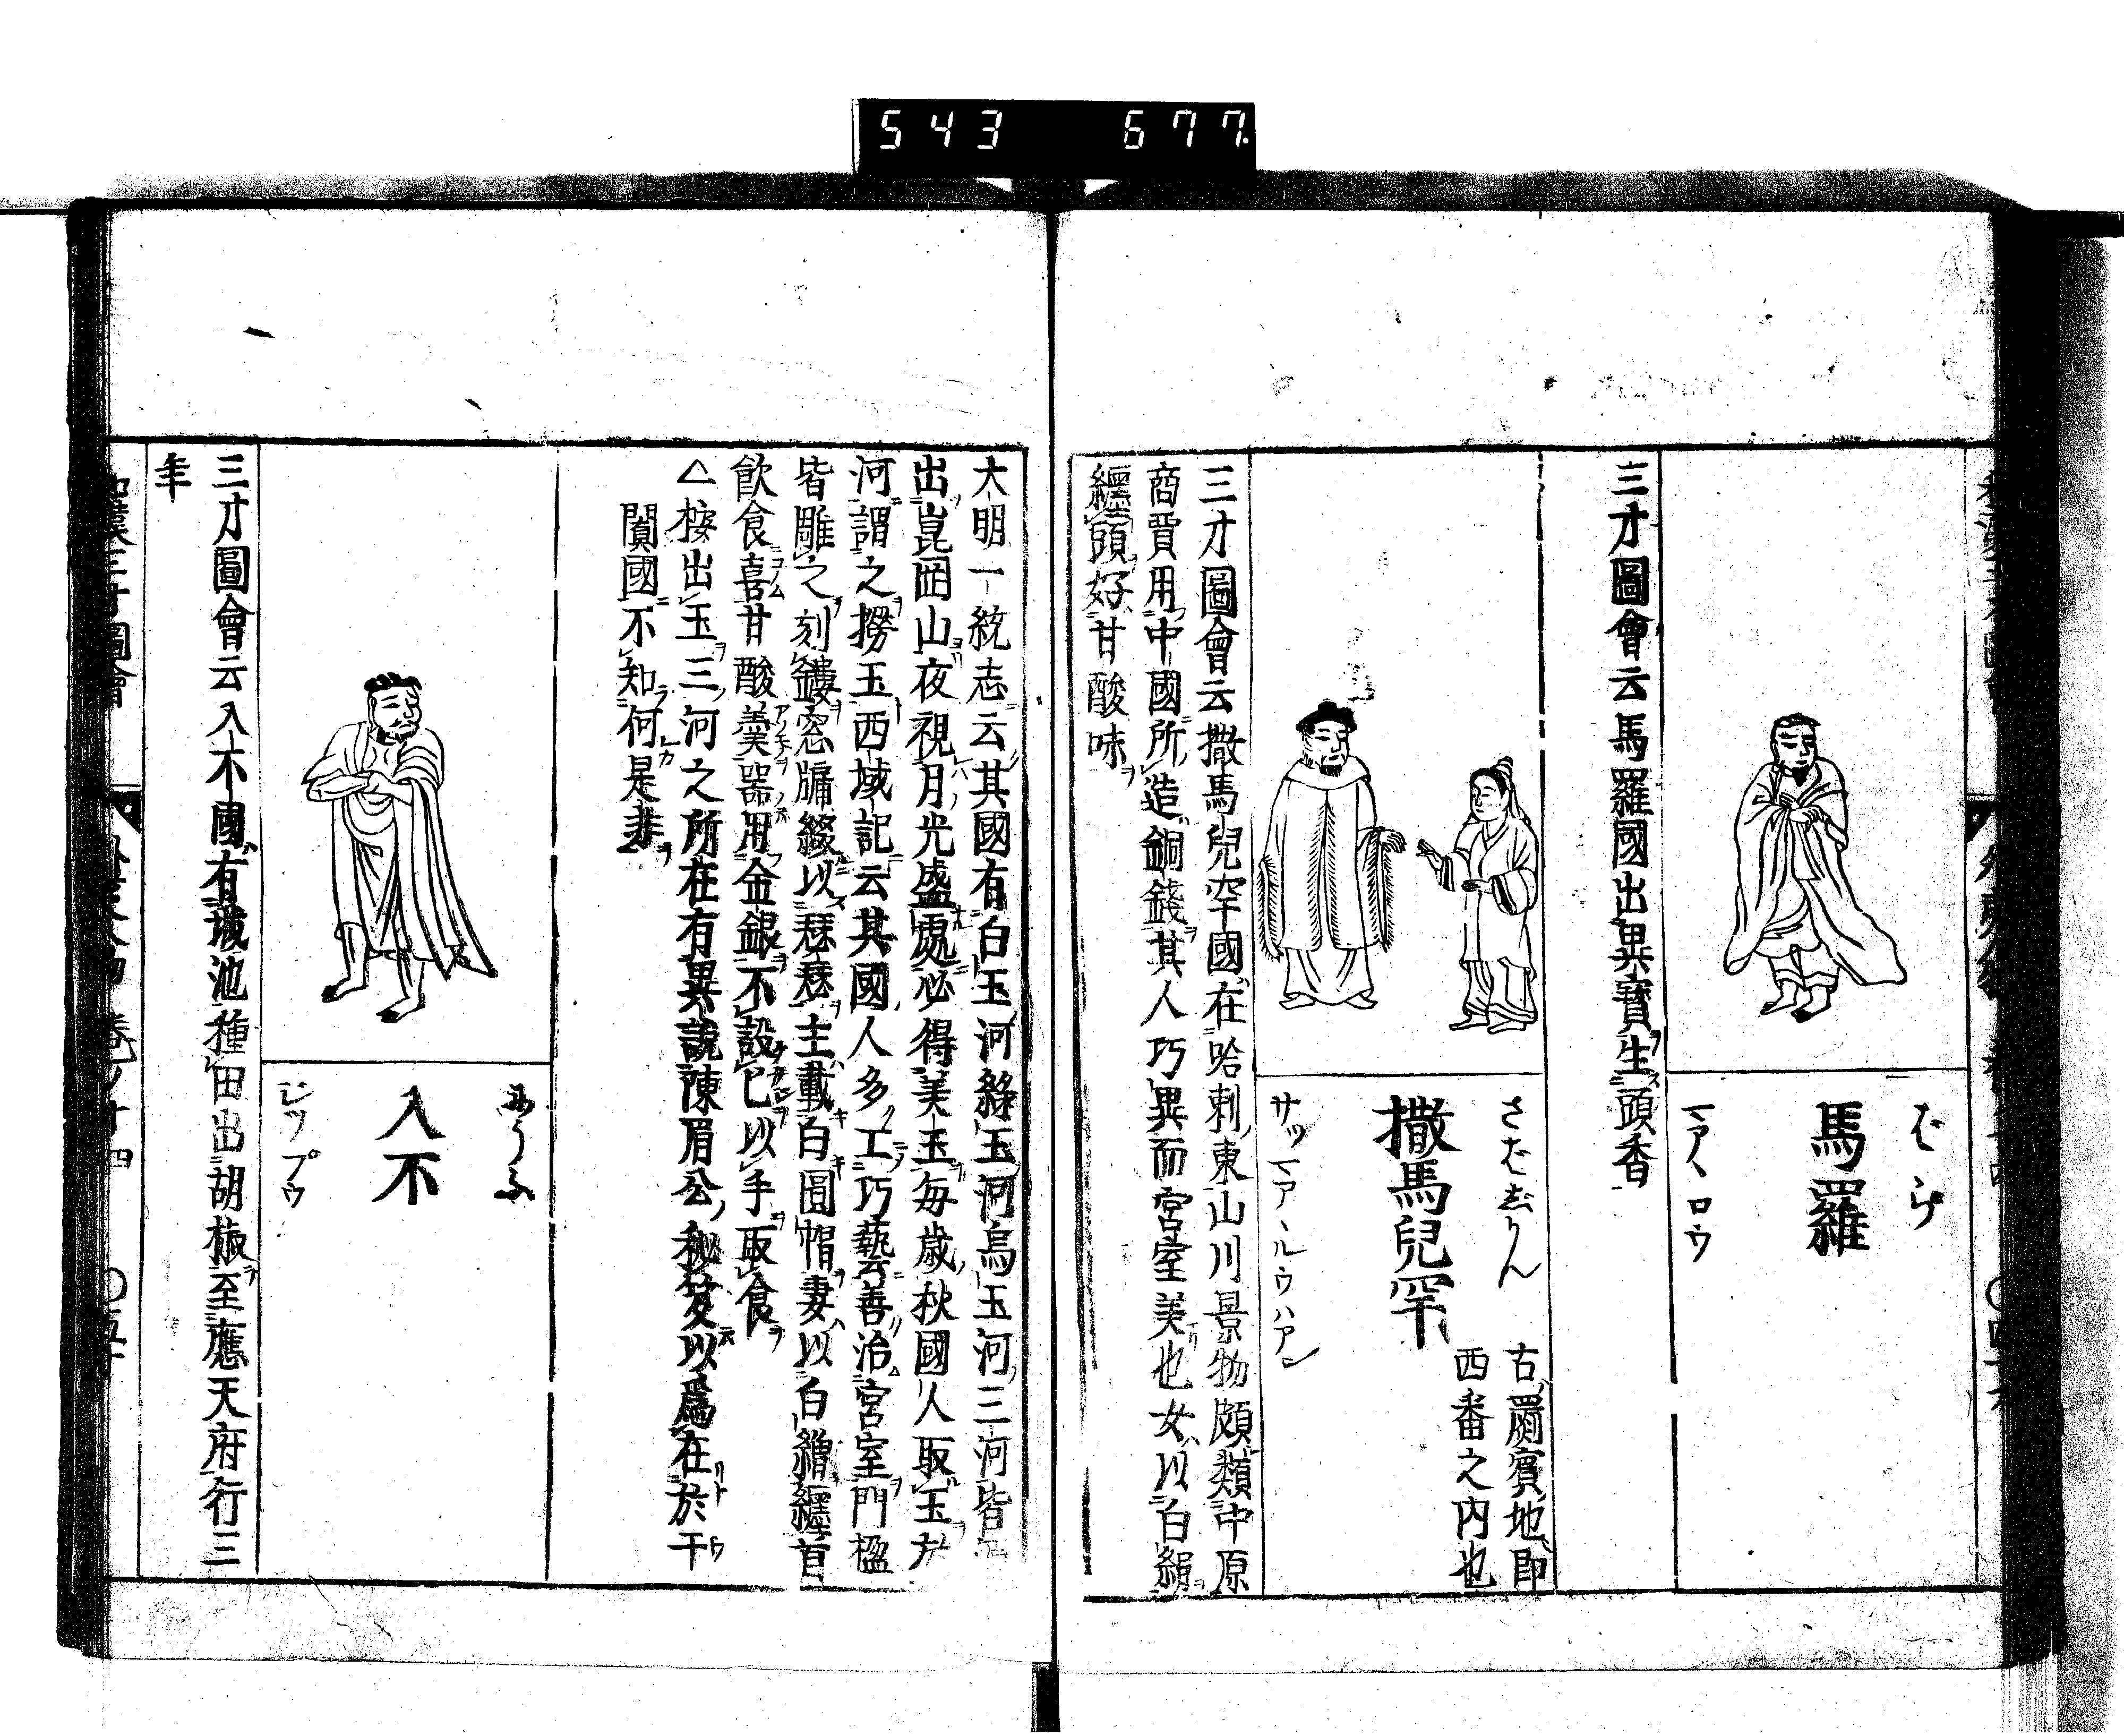 543 677
ばら
馬羅
マアヽロウ
三才圖會云馬羅國出異寶生頭香
さばじりん
撒馬兒罕
古罽賓地即
西番之内也
サツマアヽルウハアン
三才圖會云撒馬兒罕國在哈剌東山川景物頗類中原
商賈用中國所造銅錢其人巧異而宮室美也女以白絹
纒頭好甘酸味
大明一統志云其國有白玉河綠玉河烏玉河三河皆
出崑崗山夜視月光盛處必得美玉毎歳秋國人取玉於
河謂之撈玉西域記云其國人多工巧藝善治宮室門楹
皆雕之刻鏤窓牖綴以瑟瑟主載白圓帽妻以白繒纒首
飲食喜甘酸羹器用金銀不設匕以手取食
△按出玉三河之所在有異說陳眉公秘笈以爲在於于
闐國不知何是非
入不
ジツプウ
三才圖會云入不國有城池種田出胡椒至應天府行三
年